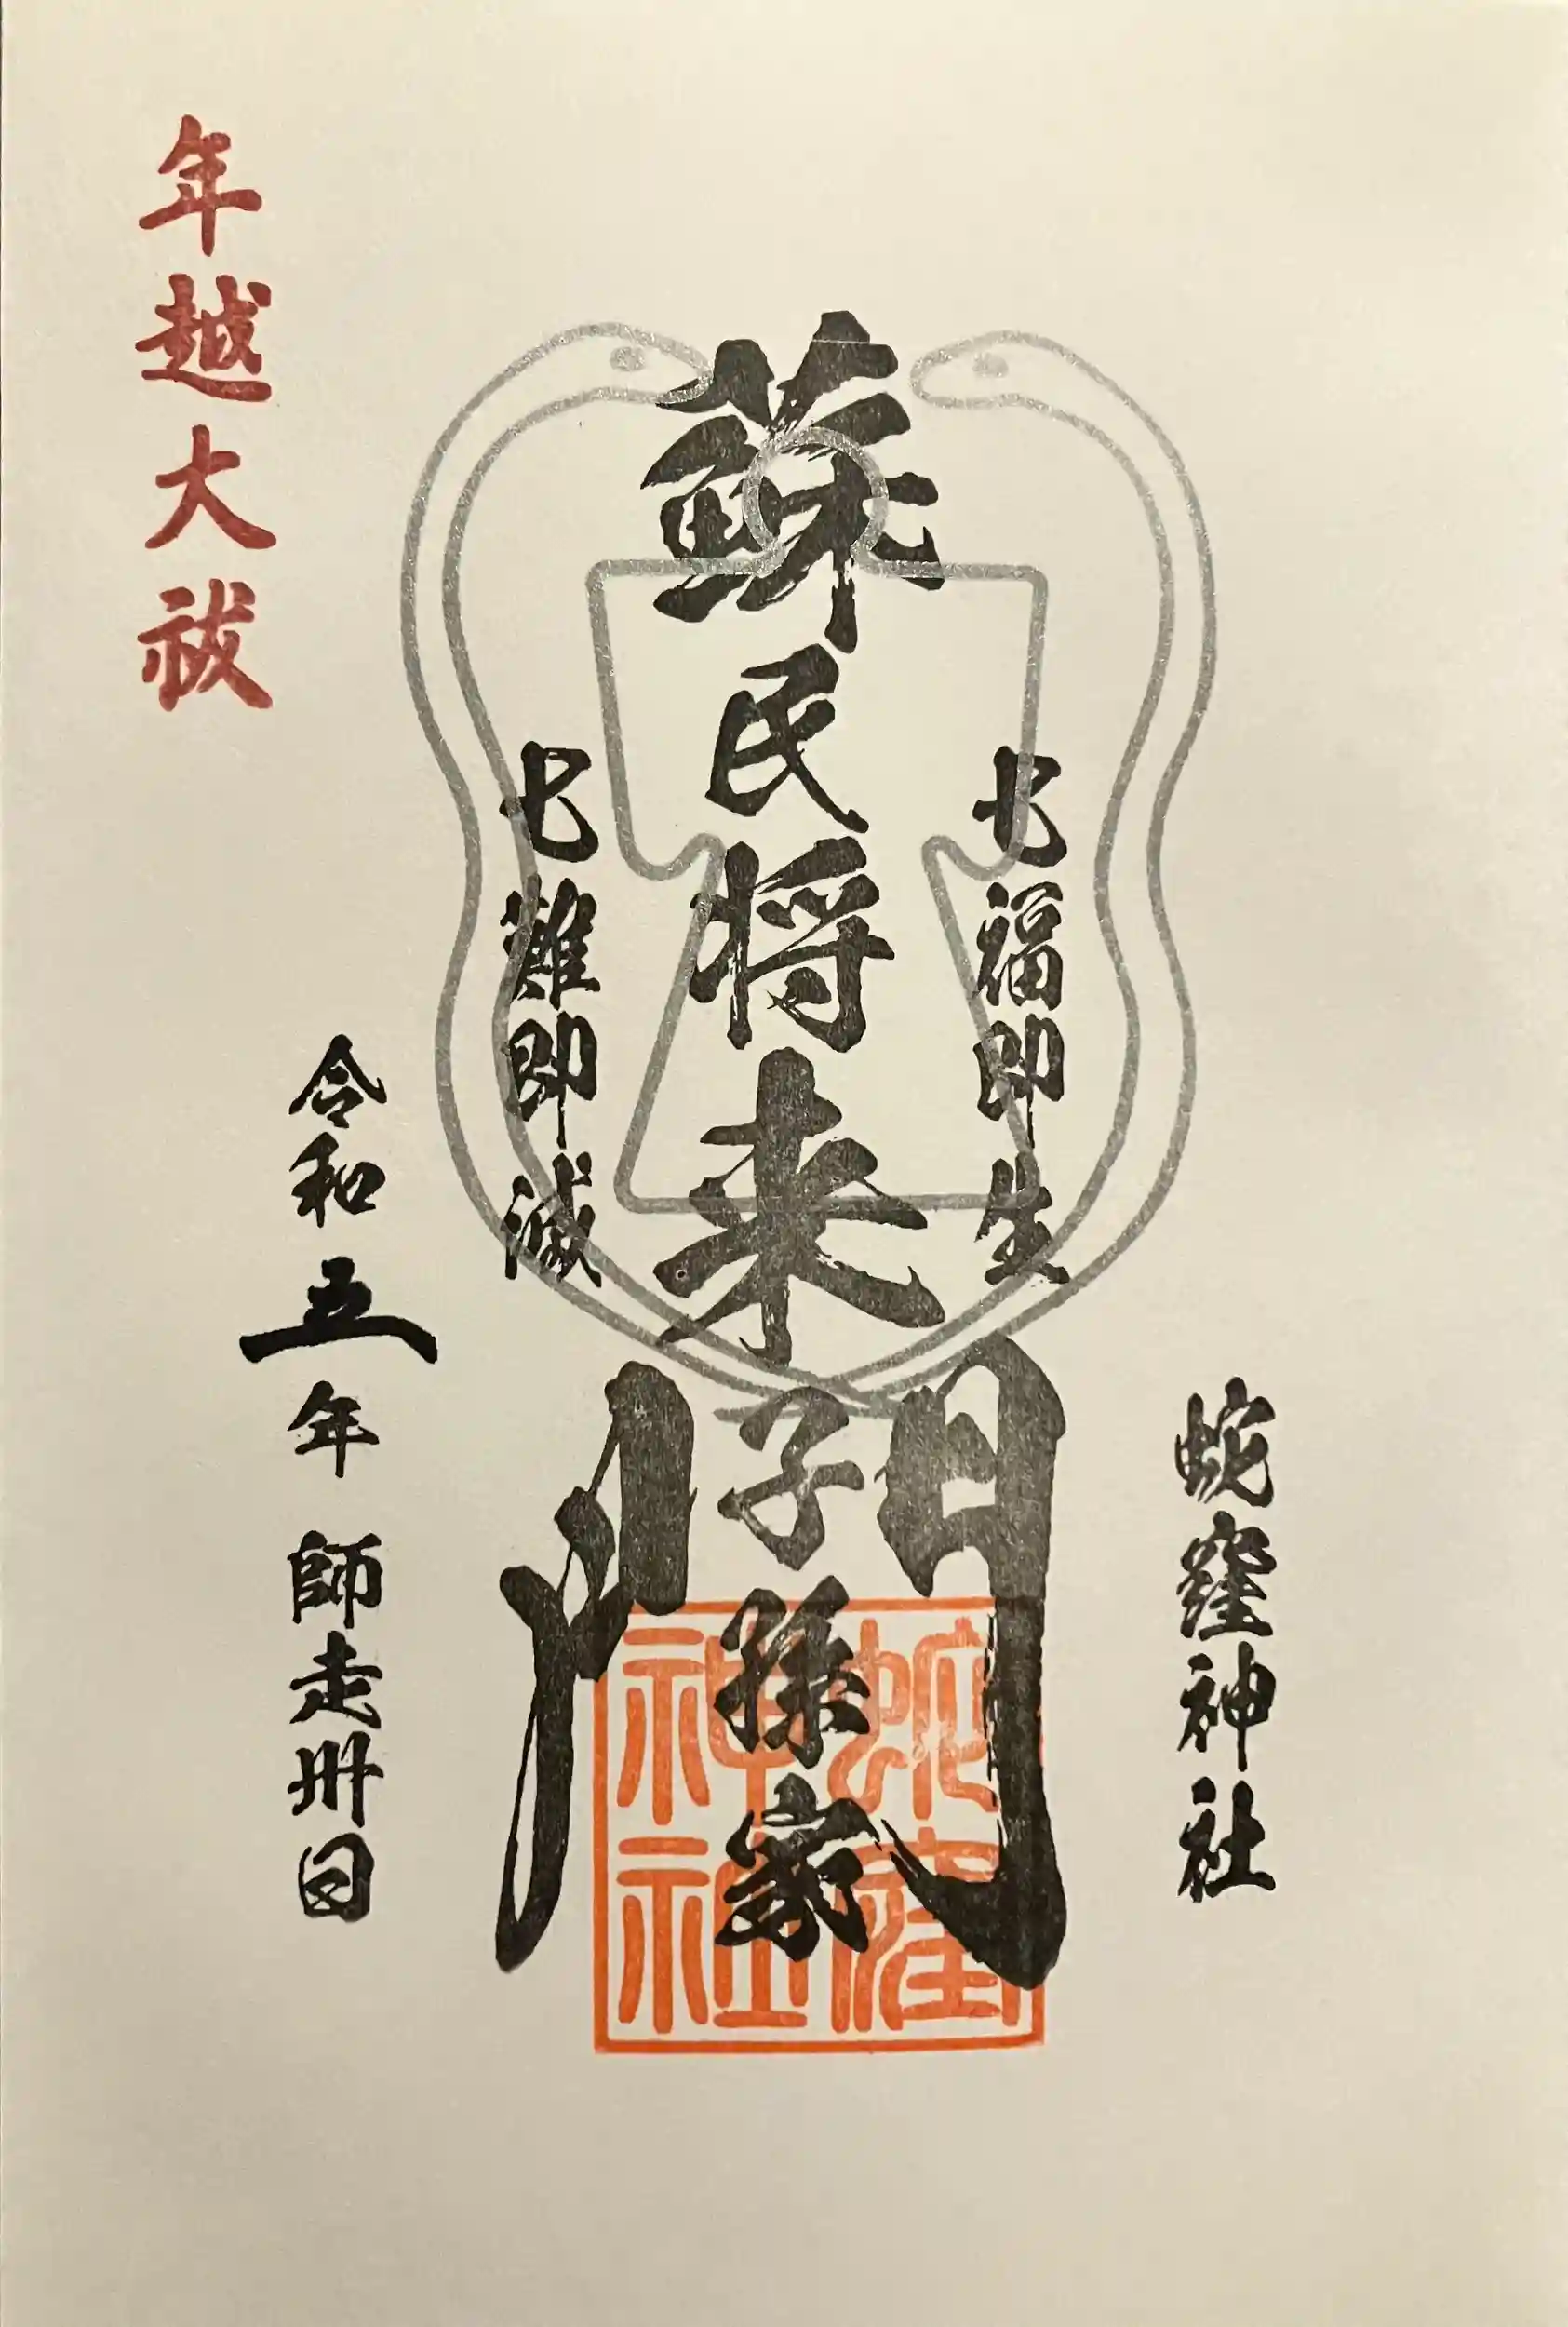 蛇窪神社
七福即生
蘇民将来子孫家門
七難即滅
令和五年 師走卅日
年越大祓
蛇窪
神社